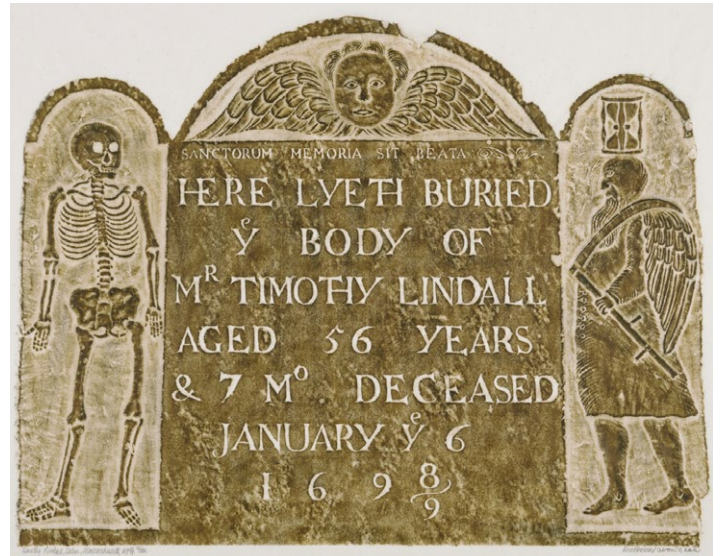 SANCTORUM MEMORIA SIT BEATA
HERE LYETH BURIED
yᵉ BODY OF
Mᴿ TIMOTHY LINDALL
AGED 56 YEARS
& 7 Mᵒ. DECEASED
JANUARY yᵉ 6
169 8/9